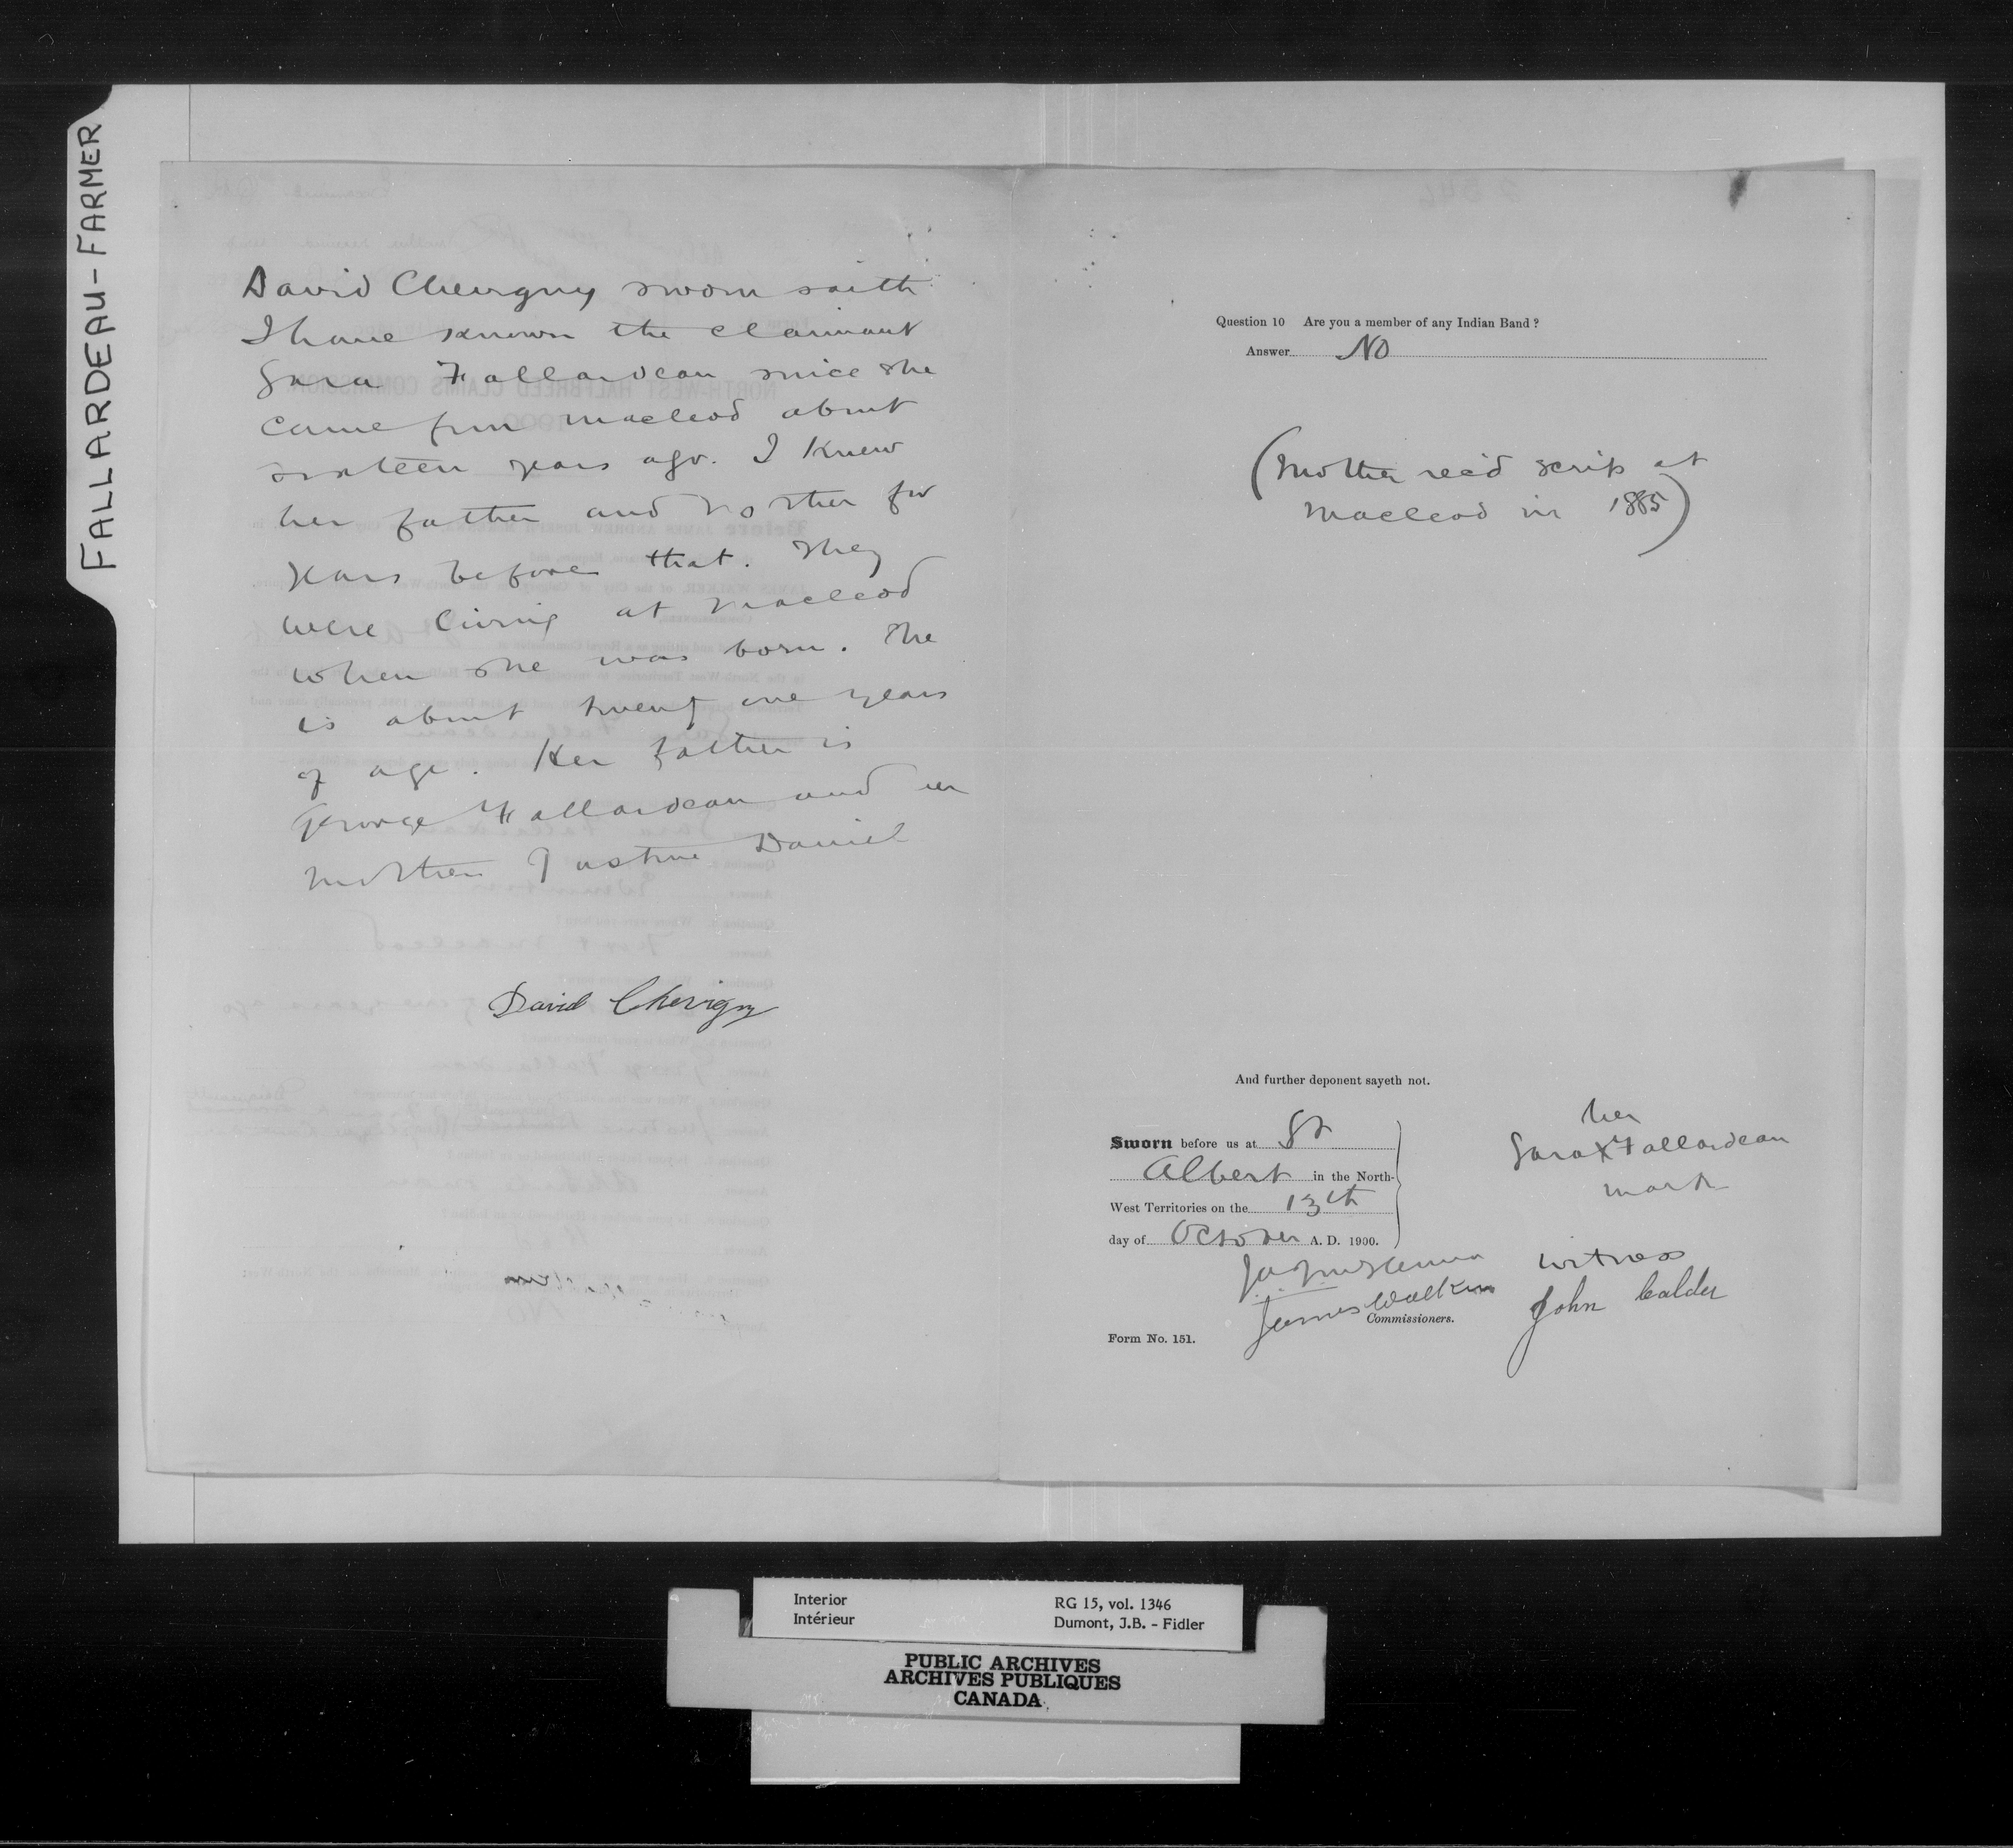 FALLARDEAU-FARMER
David Chevigny sworn saith
I have known the claimant
Sara Fallardeau since she
came from Macleod about
sixteen years ago. I knew
her father and mother for
years before that. They
were living at Macleod
when she was born. She
is about twenty one years
of age. Her father is
George Fallardeau and her
mother Justine Daniel
David Chevigny
Question 10 Are you a member of any Indian Band ?
Answer No
(Mother rec'd scrip at
Macleod in 1885)
And further deponent sayeth not.
Sworn before us at St
Albert in the North-
West Territories on the 13th
day of October A. D. 1900.
her
Sara X Fallardeau
mark
witness
John Calder
James Walker
Commissioners.
Form No. 151.
Interior
Intérieur
RG 15, vol. 1346
Dumont, J.B. - Fidler
PUBLIC ARCHIVES
ARCHIVES PUBLIQUES
CANADA